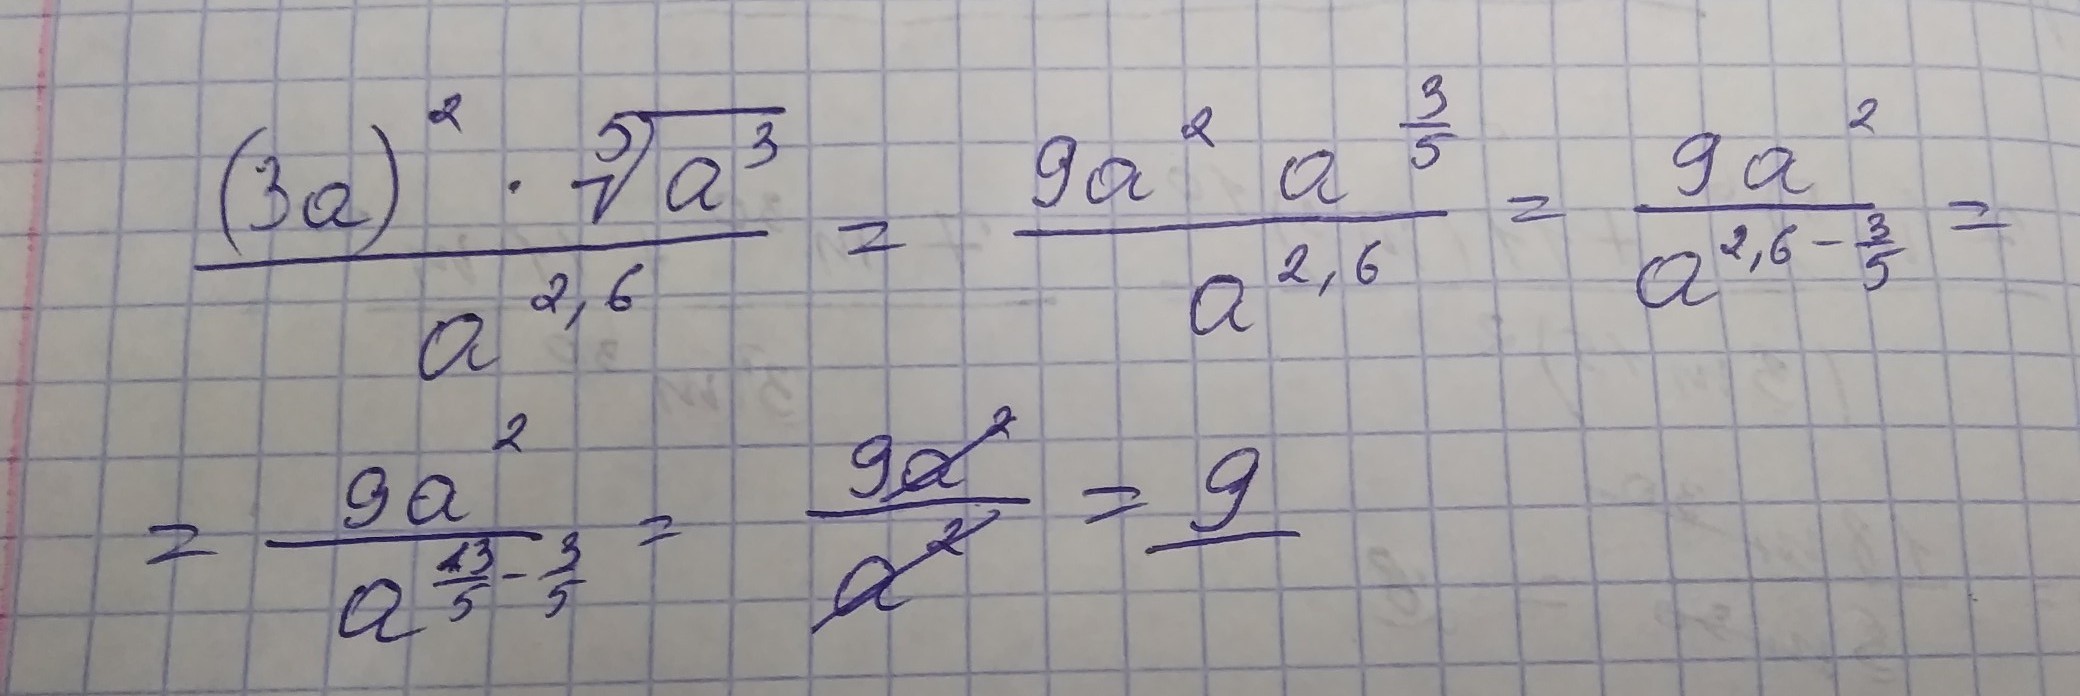 (3a)² · ⁵√a³ / a^{2,6} = 9a² a^{3/5} / a^{2,6} = 9a² / a^{2,6 - 3/5} =
= 9a² / a^{13/5 - 3/5} = 9a² / a² = 9